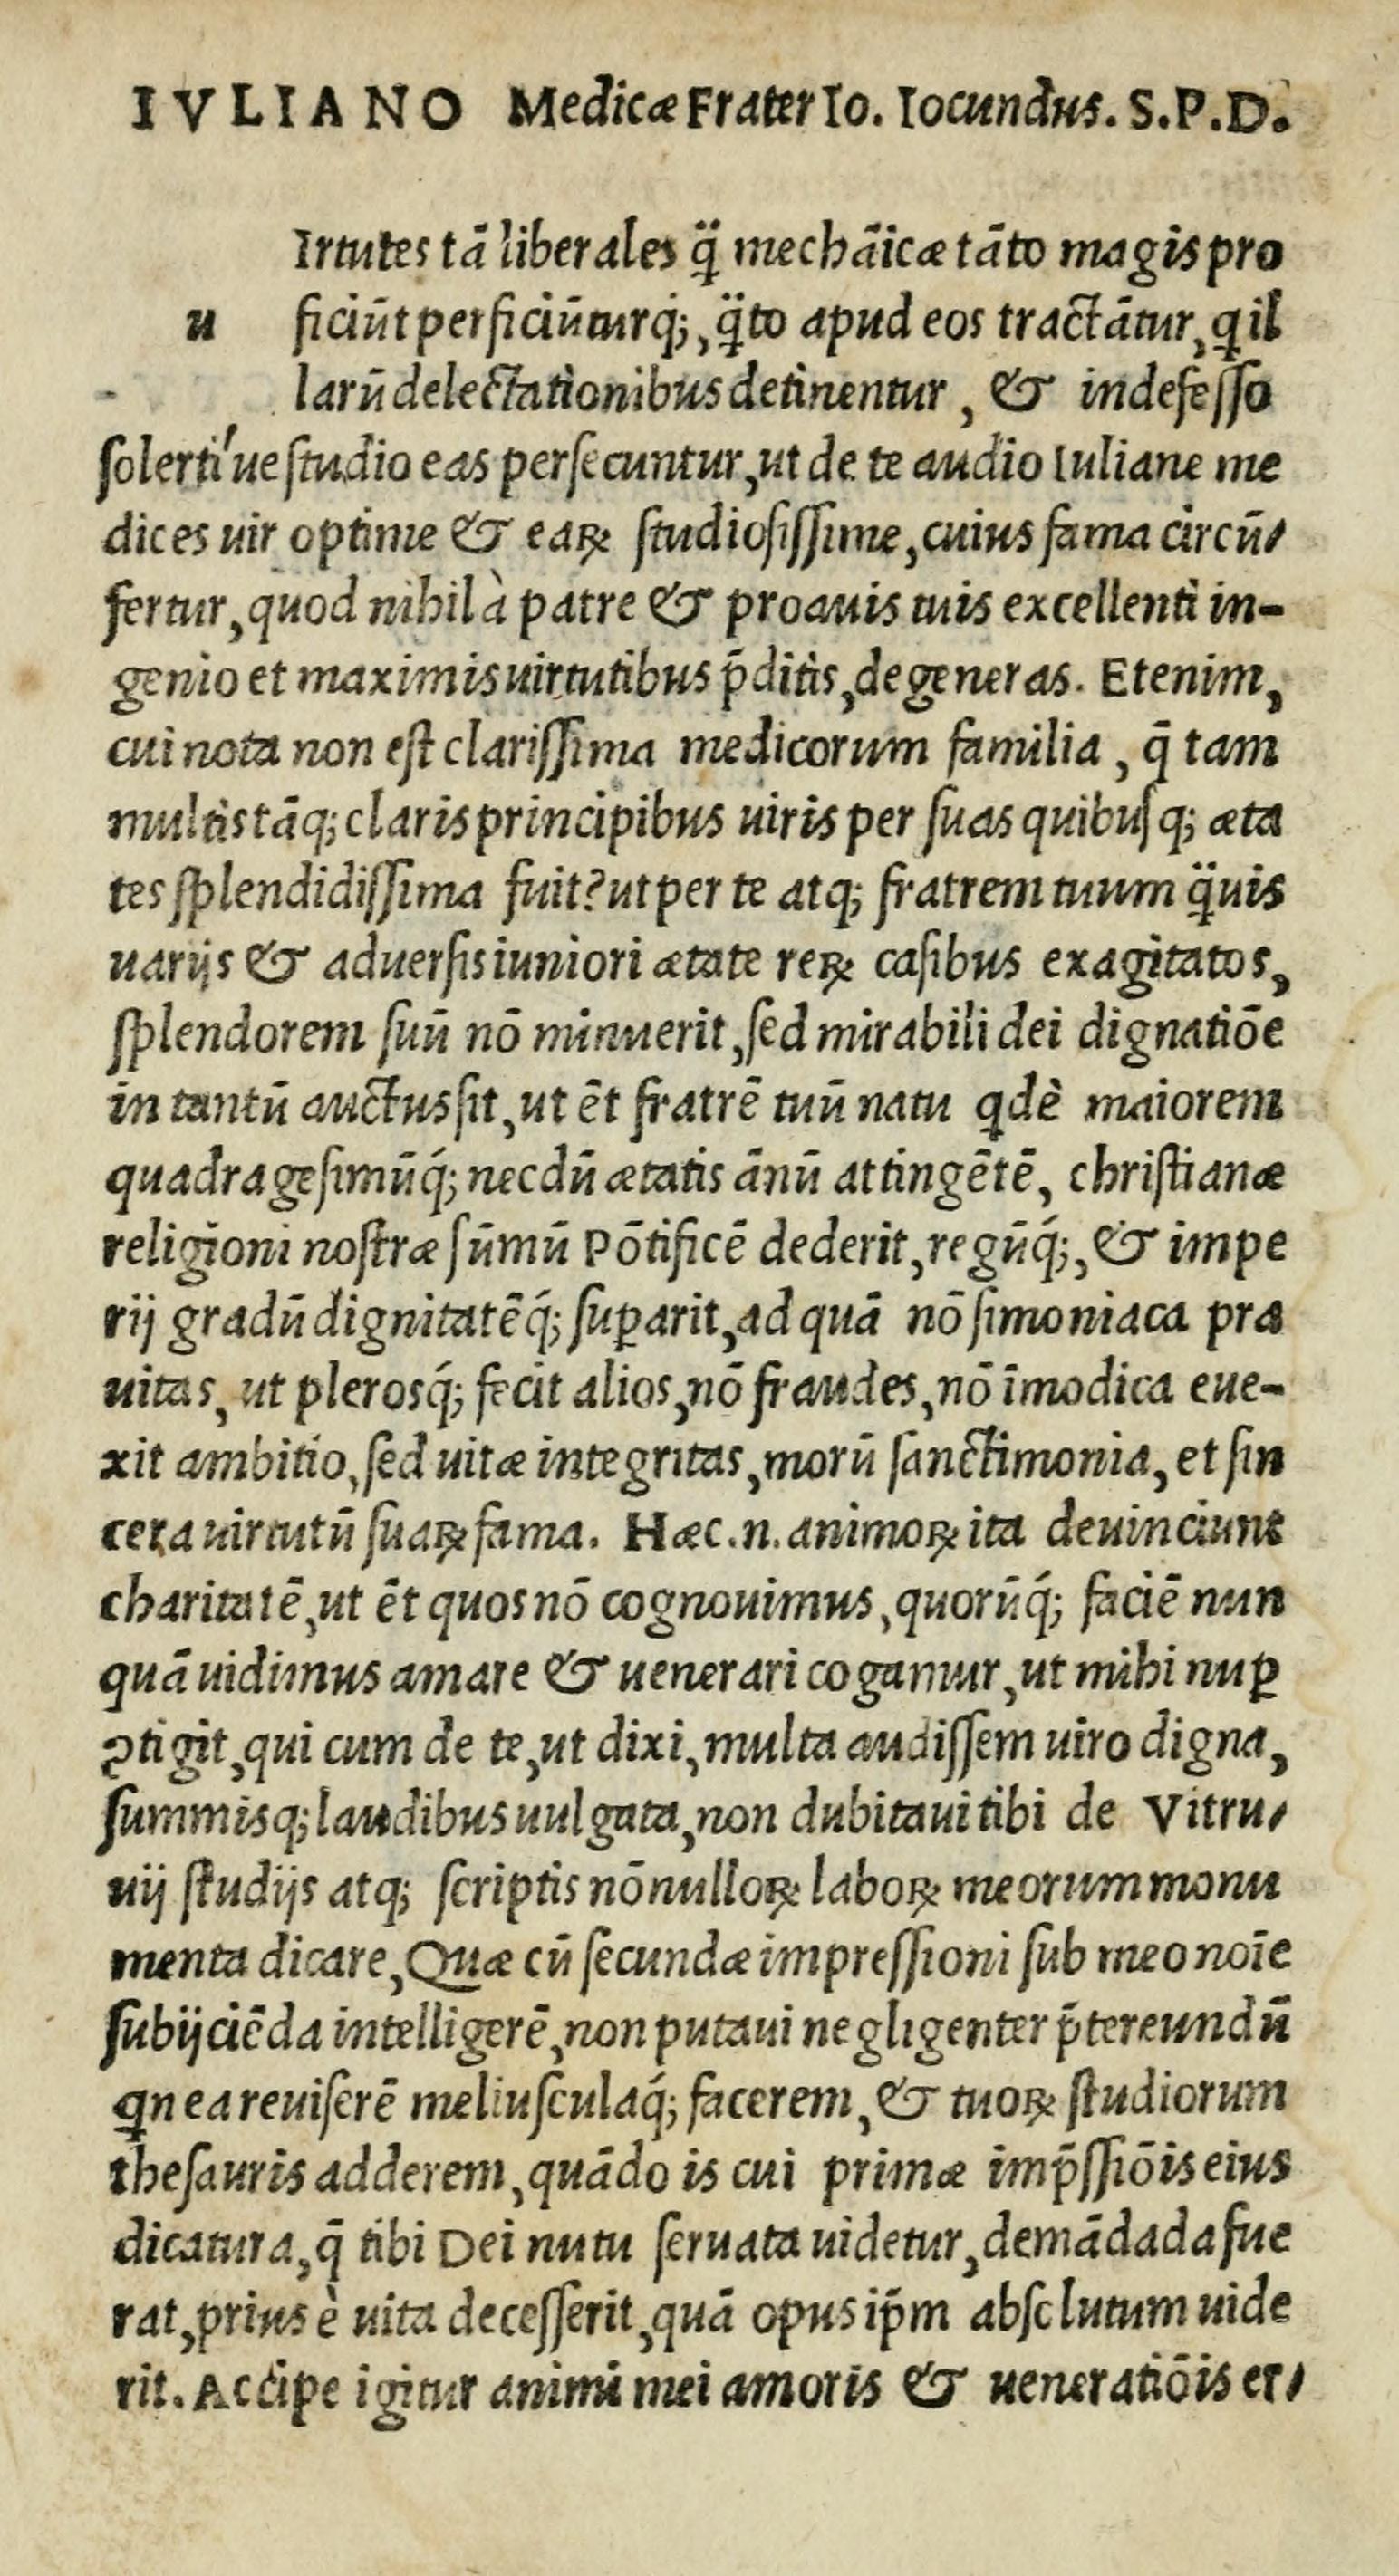 IVLIANO Medicæ Frater Io. Iocundus. S.P.D.
Irtutes tā liberales q̈ mechāicæ tāto magis pro
u ficiūt perficiūturq́;, q̈to apud eos tractātur, q il
larū delectationibus detinentur, & indefesso
solertiq́ue studio eas persecuntur, ut de te audio Iuliane me
dices uir optime & eaꝝ studiosissime, cuius fama circū/
fertur, quod nihil à patre & proauis tuis excellenti in-
genio et maximis uirtutibus p̄ditis, degeneras. Etenim,
cui nota non est clarissima medicorum familia, q̄ tam
multis tāq; claris principibus uiris per suas quibusq; æta
tes splendidissima fuit? ut per te atq; fratrem tuum q̈uis
uarijs & aduersis iuniori ætate reꝝ casibus exagitatos,
splendorem suū nō minuerit, sed mirabili dei dignatiōe
in tantū auctus sit, ut ēt fratrē tuū natu qdè maiorem
quadragesimūq́; necdū ætatis ānū attingētē, christianæ
religioni nostræ sūmū Pōtificē dederit, regūq́;, & impe
rij gradū dignitatēq́; suꝑarit, ad quā nō simoniaca pra
uitas, ut plerosq́; fecit alios, nō fraudes, nō īmodica eue-
xit ambitio, sed uitæ integritas, morū sanctimonia, et sin
cera uirtutū suaꝝ fama. Hæc .n. animoꝝ ita deuinciunt
charitatē, ut ēt quos nō cognouimus, quorūq́; faciē nun
quā uidimus amare & uenerari cogamur, ut mihi nuꝑ
ꝯtigit, qui cum de te, ut dixi, multa audissem uiro digna,
summisq; laudibus uulgata, non dubitaui tibi de Vitru/
uij studijs atq; scriptis nōnulloꝝ laboꝝ meorum monu
menta dicare, Quæ cū secundæ impressioni sub meo noīe
subijciēda intelligerē, non putaui negligenter p̄tereundū
qn ea reuiserē meliusculaq́; facerem, & tuoꝝ studiorum
thesauris adderem, quādo is cui primæ imp̄ssiōis eius
dicatura, q̄ tibi Dei nutu seruata uidetur, demādada fue
rat, prius è uita decesserit, quā opus ip̄m absolutum uide
rit. Accipe igitur animi mei amoris & ueneratiōis er/